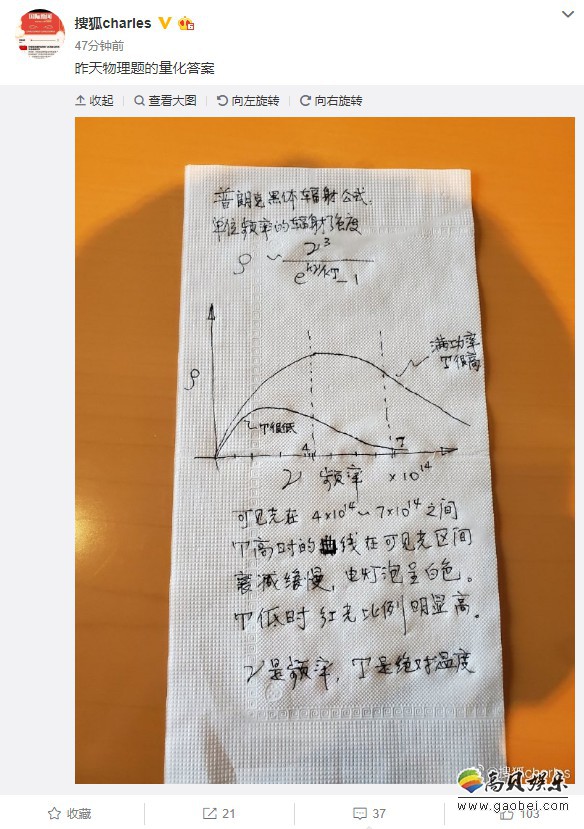 搜狐charles
47分钟前
昨天物理题的量化答案
收起 查看大图 向左旋转 向右旋转
普朗克黑体辐射公式:
单位频率的辐射强度
ρ ~ ν³ / (e^(hν/kT) - 1)
满功率
T很高
ρ
T很低
4 7
ν 频率 ×10¹⁴
可见光在 4×10¹⁴ ~ 7×10¹⁴ 之间
T高时的曲线在可见光区间
衰减缓慢,电灯泡呈白色。
T低时红光比例明显高.
ν是频率,T是绝对温度
搜狐charles
高贝娱乐
www.gaobei.com
收藏 21 37 103